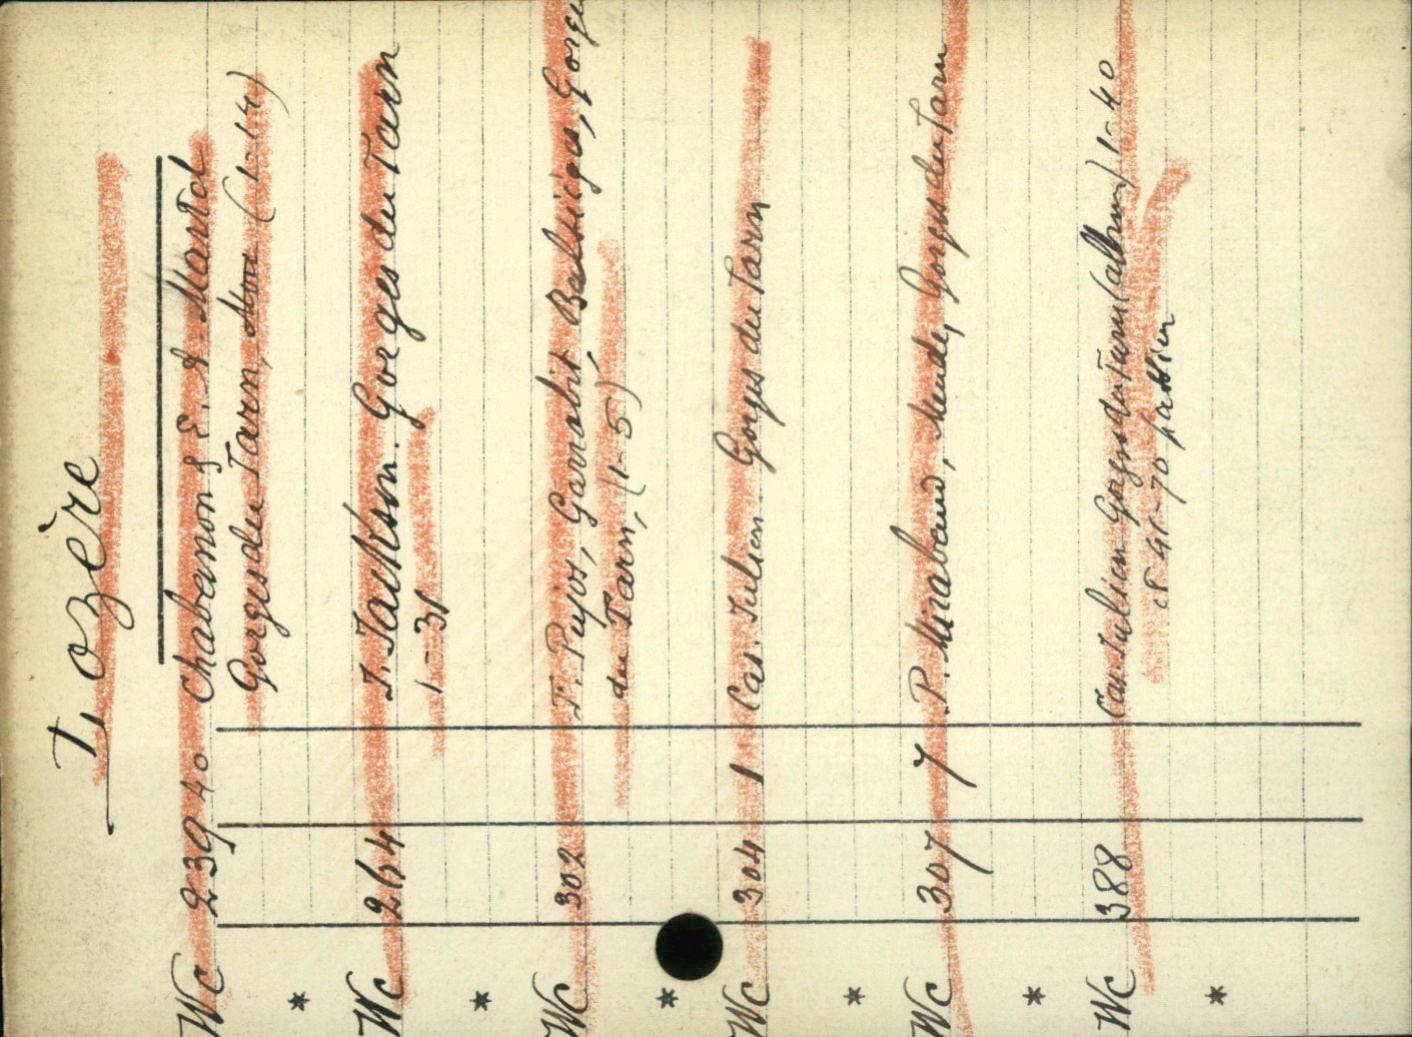 Lozère
Wc 239 40 Chabanon & E. A. Martel
Gorges du Tarn, Mou (1-14)
*
Wc 264 J. Jackson. Gorges du Tarn
1-31
*
Wc 302 F. Pujos, Garrabit, Balsièges, Gorges
du Tarn, (1-5)
*
Wc 304 1 Cas. Julien. Gorges du Tarn
*
Wc 307 7 P. Mirabaud, Mende, Gorges du Tarn
*
Wc 388 Cas. Julien Gorges du Tarn (album) 1-40
et 41-70 passim
*